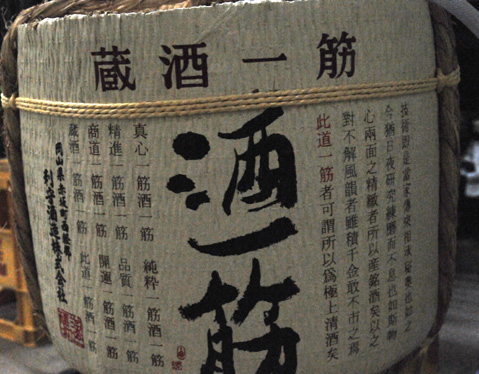 蔵酒一筋
技術即是當家傳來相承秘奥也如之
今猶日夜研究練磨而不息也如斯物
心兩面之精緻者所以産銘酒矣以之
對不解風韻者雖積千金敢不市之焉
此道一筋者可謂所以爲極上清酒矣
酒一筋
真心一筋酒一筋 純粋一筋酒一筋
精進一筋酒一筋 品質一筋酒一筋
商道一筋酒一筋 開運一筋酒一筋
蔵酒一筋酒一筋 此道一筋酒一筋
岡山県赤坂町西軽部
利守酒造株式会社